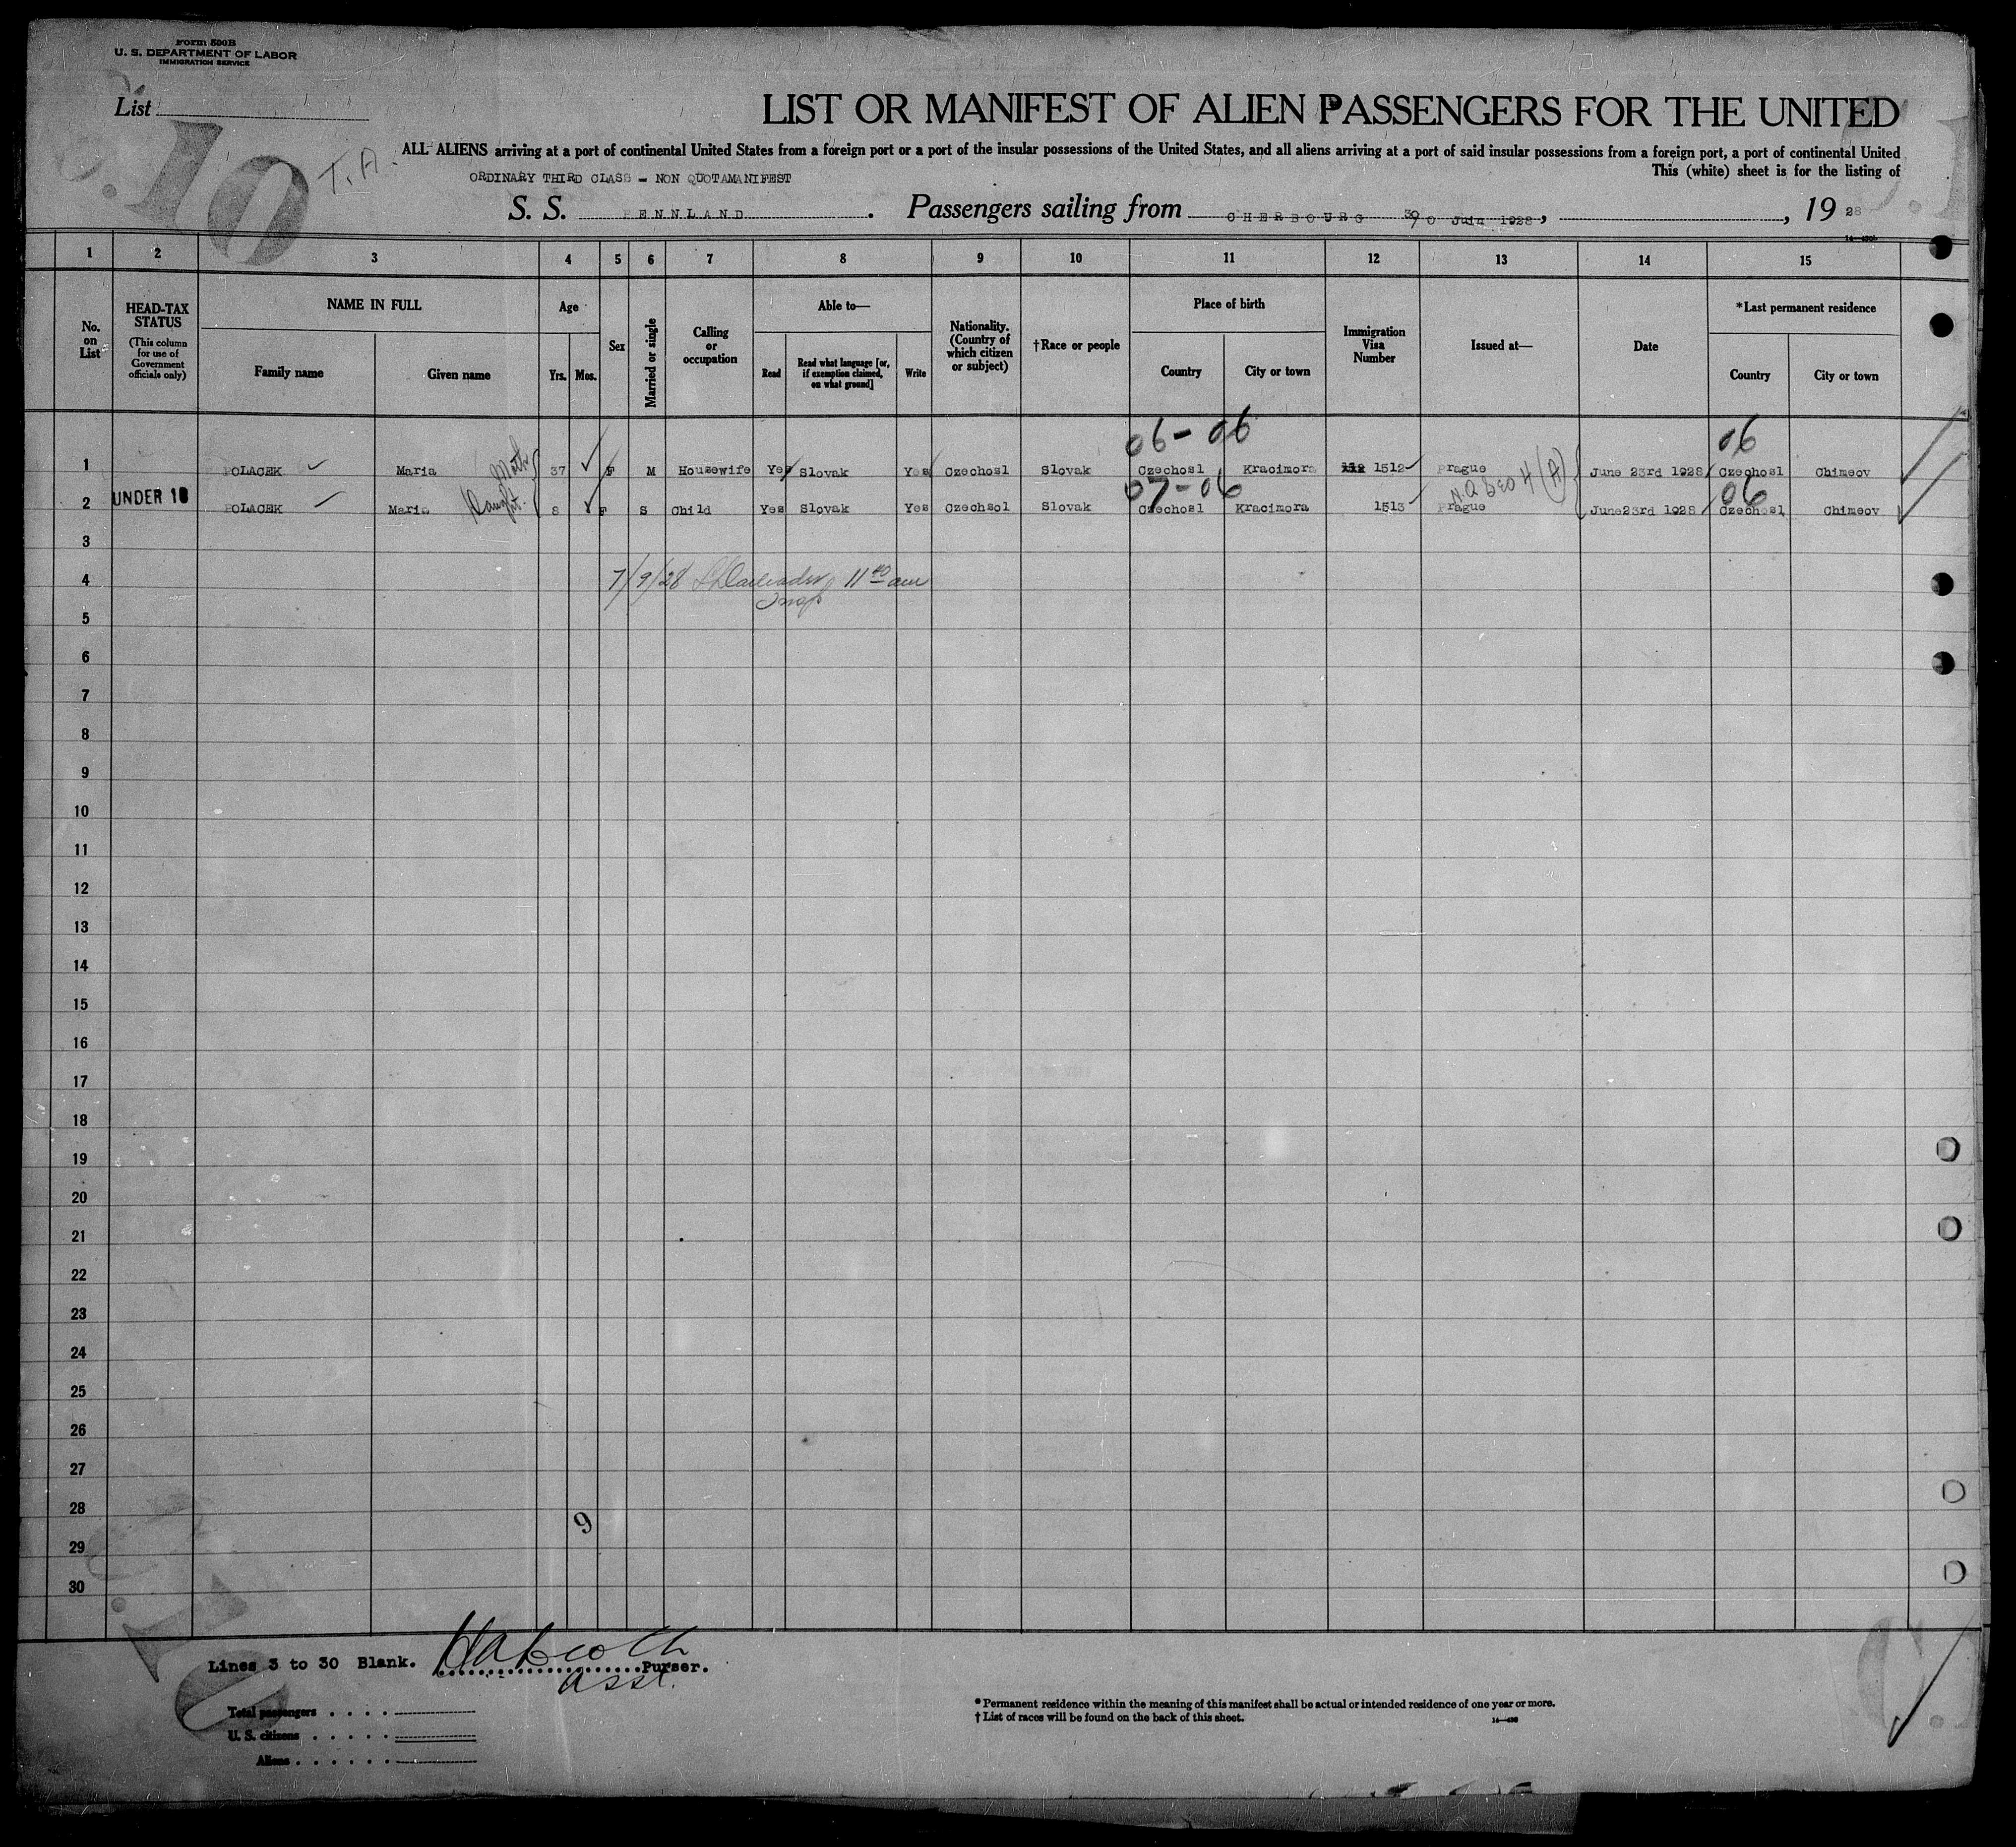 Form 500B
U. S. DEPARTMENT OF LABOR
IMMIGRATION SERVICE
List
10
T.A.
LIST OR MANIFEST OF ALIEN PASSENGERS FOR THE UNITED
ALL ALIENS arriving at a port of continental United States from a foreign port or a port of the insular possessions of the United States, and all aliens arriving at a port of said insular possessions from a foreign port, a port of continental United
This (white) sheet is for the listing of
ORDINARY THIRD CLASS - NON QUOTAMANIFEST
S. S. PENNLAND. Passengers sailing from CHERBOURG 30 Juin 1928, , 19 28
1 2 3 4 5 6 7 8 9 10 11 12 13 14 15
No. on List
HEAD-TAX STATUS
(This column for use of Government officials only)
NAME IN FULL
Family name
Given name
Age
Yrs. Mos.
Sex
Married or single
Calling or occupation
Able to—
Read
Read what language [or, if exemption claimed, on what ground]
Write
Nationality. (Country of which citizen or subject)
†Race or people
Place of birth
Country
City or town
Immigration Visa Number
Issued at—
Date
*Last permanent residence
Country
City or town
06-06 06
1 POLACEK Maria Moth 37 F M Housewife Yes Slovak Yes Czechosl Slovak Czechosl Kracimora 1512 Prague June 23rd 1928 Czechosl Chimeov
07-06 06
2 UNDER 16 POLACEK Maria Daught. 8 F S Child Yes Slovak Yes Czechsol Slovak Czechosl Kracimora 1513 Prague June23rd 1928 Czechosl Chimeov
(A)
3
4 7/9/28 11 40 am
Insp
5
6
7
8
9
10
11
12
13
14
15
16
17
18
19
20
21
22
23
24
25
26
27
28
9
29
30
Lines 3 to 30 Blank. Purser.
asst.
Total passengers
U. S. citizens
Aliens
* Permanent residence within the meaning of this manifest shall be actual or intended residence of one year or more.
† List of races will be found on the back of this sheet.